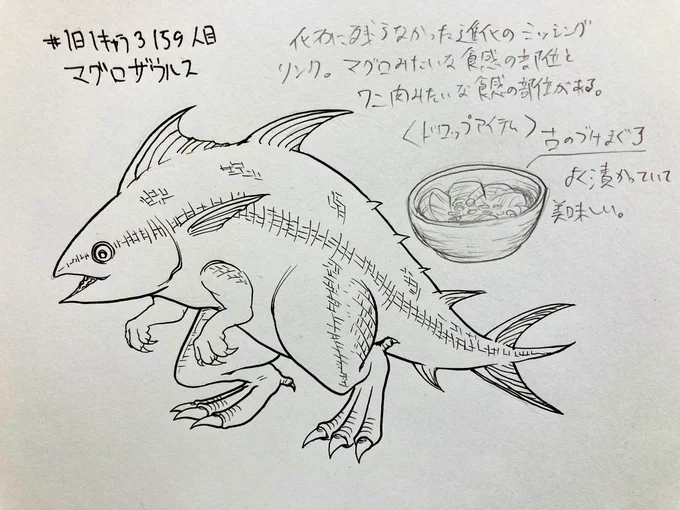 #1日1キャラ3159人目
マグロザウルス
化石に残らなかった進化のミッシング
リンク。マグロみたいな食感の部位と
ワニ肉みたいな食感の部位がある。
〈ドロップアイテム〉
古のづけまぐろ
よく漬かっていて
美味しい。